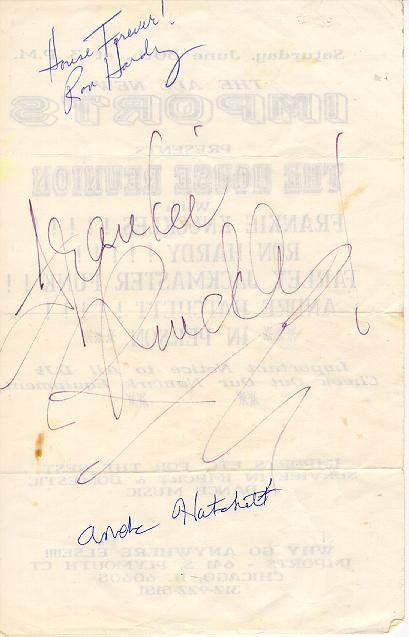 House Forever!
Ron Hardy
Saturday, June
P.M.
THE ALL NEW
IMPORTS
PRESENTS
THE HOUSE REUNION
Frankie
Knuckles!
FRANKIE KNUCKLES ! ! !
RON HARDY ! ! ! !
FARLEY JACKMASTER FUNK ! !
ANDRE HATCHETT ! ! !
** IN PERSON **
Important Notice to All DJs
Check Out Our Equipment
**
IMPORTS ETC FOR THE BEST
SERVICE IN IMPORT & DOMESTIC
DANCE MUSIC
Andre Hatchett
WHY GO ANYWHERE ELSE!!!!
IMPORTS - 641 S. PLYMOUTH CT
CHICAGO, IL 60605
312-922-5191